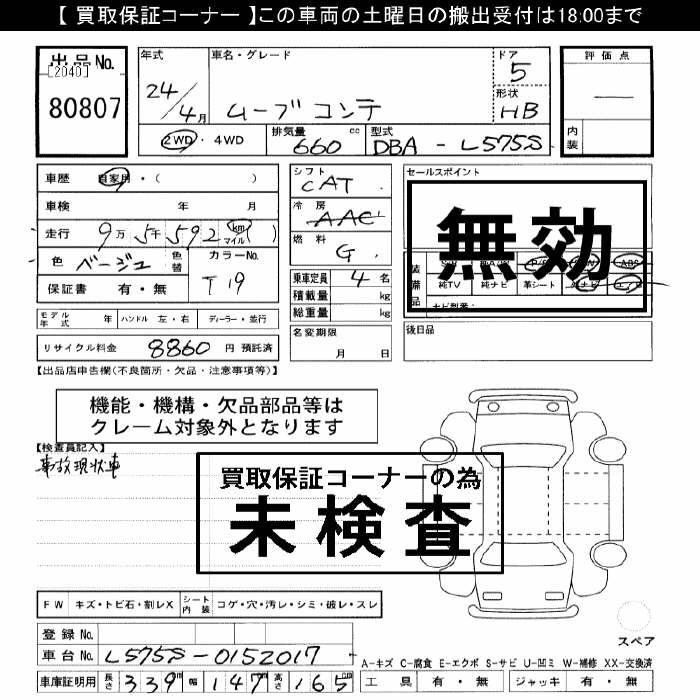 【 買取保証コーナー 】この車両の土曜日の搬出受付は18:00まで
出品No.
[2040]
80807
年式
24/4月
車名・グレード
ムーブコンテ
ドア
5
形状
HB
評価点
内装
2WD・4WD
排気量
660 cc
型式
DBA - L575S
車歴 自家用・( )
車検 年 月
走行 9万5千592 km マイル ( )
色 ベージュ 色替
カラーNo.
T19
保証書 有・無
シフト
CAT
冷房
AAC
燃料
G
乗車定員 4 名
積載量 kg
総重量 kg
セールスポイント
無効
装備品
純TV 純ナビ 革シート
モデル年式 年 ハンドル 左・右 ディーラー・並行
リサイクル料金 8860 円 預託済
名変期限
月 日
後日品
【出品店申告欄(不良箇所・欠品・注意事項等)】
機能・機構・欠品部品等は
クレーム対象外となります
【検査員記入】
事故現状車
買取保証コーナーの為
未検査
FW キズ・トビ石・割レX シート内装 コゲ・穴・汚レ・シミ・破レ・スレ
スペア
登録No.
車台No. L575S-0152017
車庫証明用 長さ 339 幅 147 cm 高さ 165 cm
A-キズ C-腐食 E-エクボ S-サビ U-凹ミ W-補修 XX-交換済
工具 有・無 ジャッキ 有・無